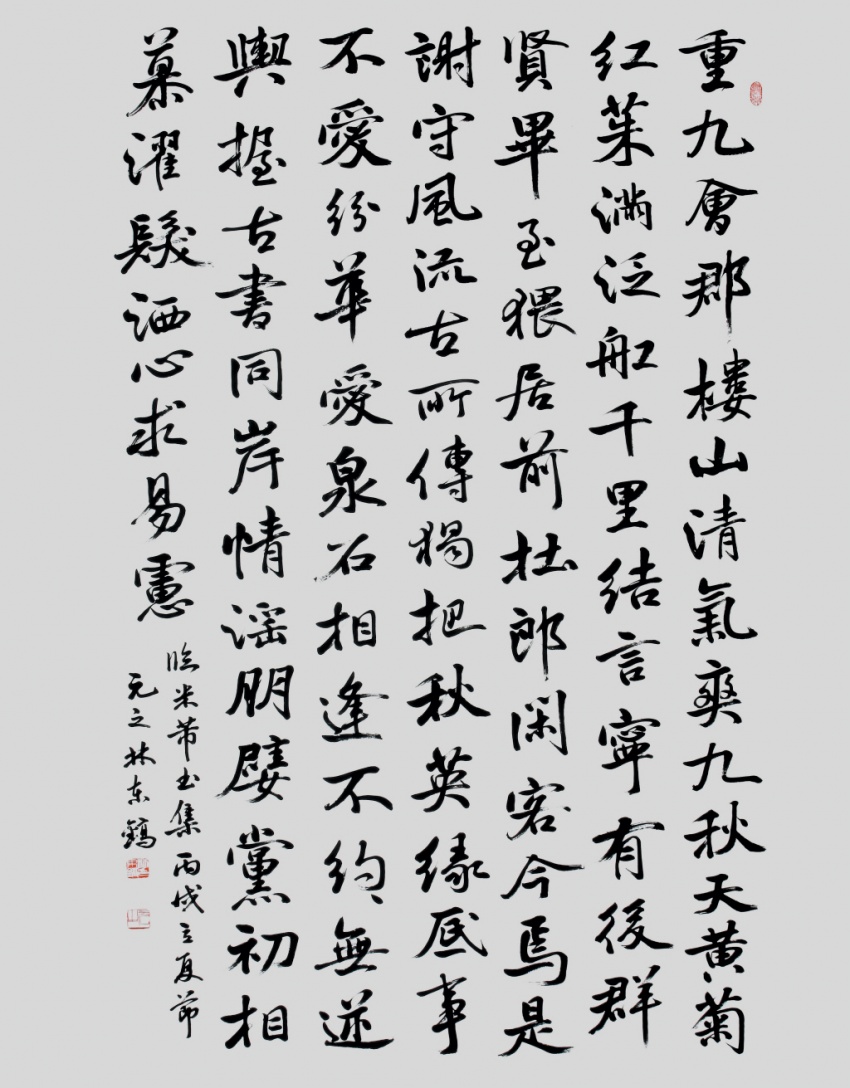 重九會郡樓山清氣爽九秋天黄菊
紅茱滿泛舡千里結言寧有後群
賢畢至猥居前杜郎閑客今焉是
謝守風流古所傳獨把秋英緣底事
不愛紛華愛泉石相逢不約無逆
與握古書同岸幘淫朋嬖黨初相
慕濯髮洒心求易慮
臨米芾书集丙戌立夏節
元之林东鎬